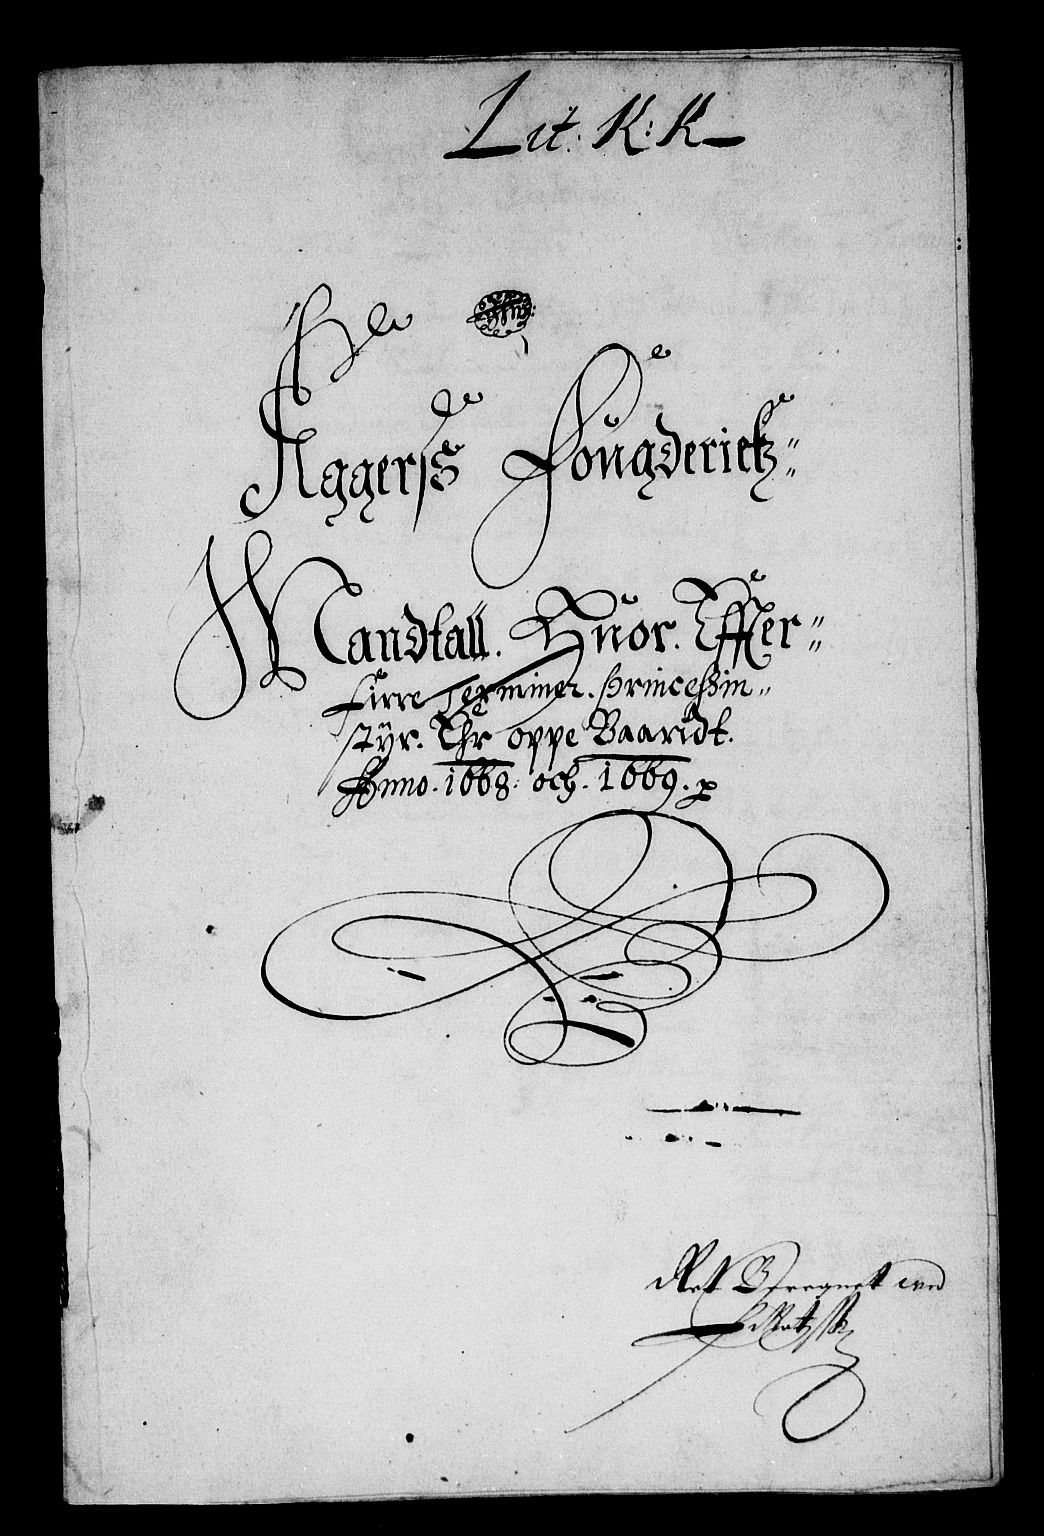 Lit: K: K
Aggerss Fougderietz
Mandtall. Huor. Effter
firre Terminer. Princeßin
styr. Ehr oppe Baaridt.
Anno. 1668. och. 1669. p
Ret Beregnet